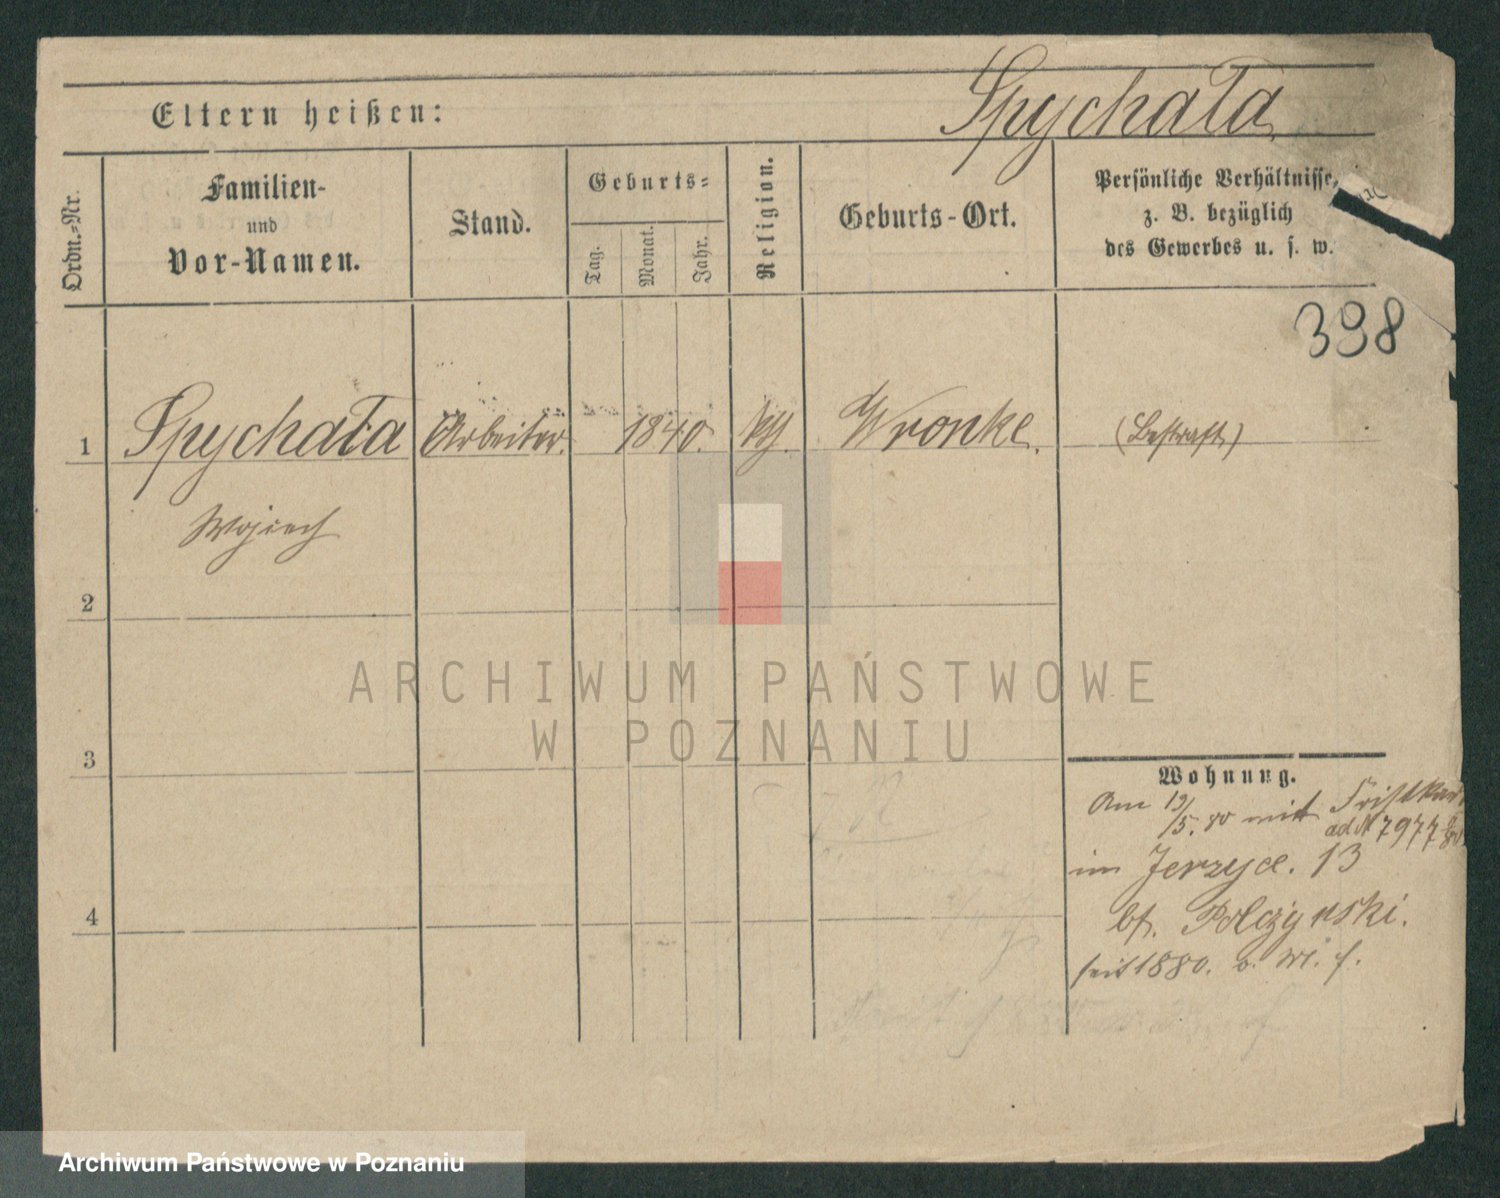 Spychała
Eltern heißen:
Ordn.-Nr.
Familien-
und
Vor-Namen.
Stand.
Geburts-
Tag.
Monat.
Jahr.
Religion.
Geburts-Ort.
Persönliche Verhältnisse,
z. B. bezüglich
des Gewerbes u. s. w.
398
1 Spychała Arbeiter. 1840. Wronke. (Bestraft)
Wojciech
2
3
4
Wohnung.
Am 19/5. 80 mit
ad № 7977
im Jerzyce. 13
bh. Polczynski.
seit 1880.
ARCHIWUM PAŃSTWOWE
W POZNANIU
Archiwum Państwowe w Poznaniu